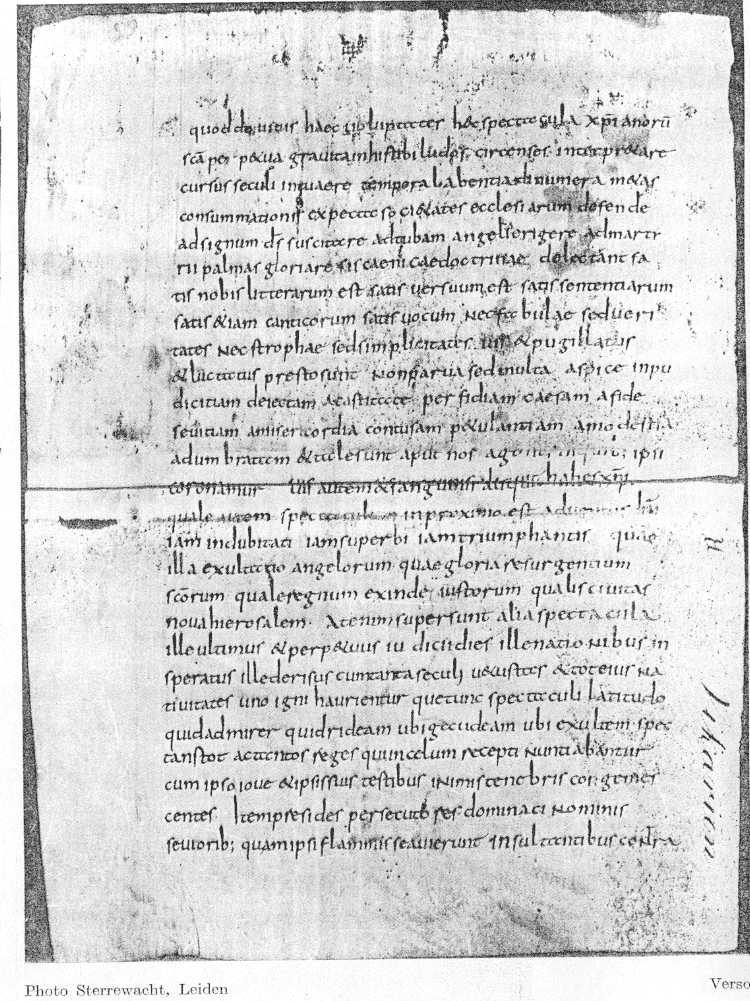 quod de istius haec uoluptates hec spectacula xpianorū
scā per petua gratuita in his tibi ludos, circenses interpretare
cursus seculi intuere tempora labentia dinumera metas
consummationis expecta societates ecclesiarum defende
ad signum dī suscitare ad tubam angeli erigere ad martỳ
rii palmas gloriare si scaenicae doctrinae delectant sa
tis nobis litterarum est satis uersuum est satis sententiarum
satis etiam canticorum satis uocum nec fabulae sed ueri
tates nec strophae sed simplicitates. uis et pugillatus
et luctatus presto sunt non parua sed multa aspice inpu
dicitiam deiectam a castitate perfidiam caesam a fide
seuitiam a misericordia contusam petulantiam a modestia
adumbratam et tales sunt aput nos agones in quib; ipsi
coronamur uis autem et sanguinis aliquit habes xpī
quale autem spectaculum in proximo est aduentus
iam indubitati iam superbi iam triumphantis quae
illa exultatio angelorum quae gloria resurgentium
scōrum quale regnum exinde iustorum qualis ciuitas
noua hierosalem. At enim supersunt alia spectacula
ille ultimus et perpetuus iudicii dies ille nationibus in
speratus ille derisus cum tanta seculi uetustas et tot eius na
tiuitates uno igni haurientur que tunc spectaculi latitudo
quid admirer quid rideam ubi gaudeam ubi exultem spec
tans tot ac tantos reges qui in celum recepti nuntiabantur
cum ipso ioue et ipsis suis testibus in imis tenebris congemes
centes Item presides persecutores dominaci nominis
seuiorib; quam ipsi flammis seauierunt insultantibus contra
Photo Sterrewacht, Leiden
Verso